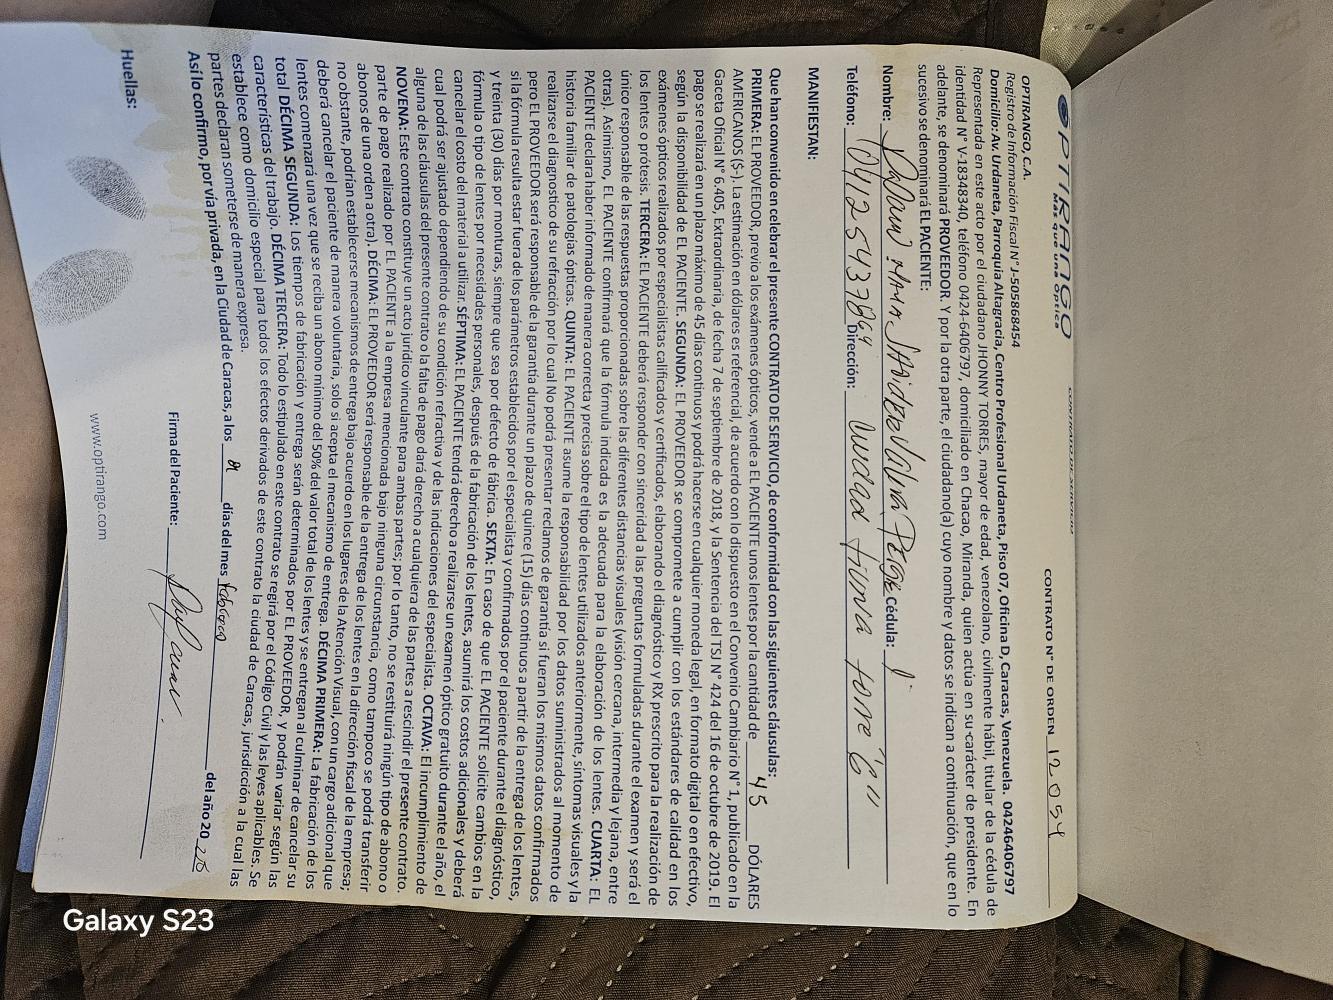 OPTIRANGO
Más que una Óptica
CONTRATO DE SERVICIO
CONTRATO N° DE ORDEN 12054
OPTIRANGO, C.A.
Registro de Información Fiscal N° J-505868454
Domicilio: Av. Urdaneta, Parroquia Altagracia, Centro Profesional Urdaneta, Piso 07, Oficina D, Caracas, Venezuela. 04246406797
Representada en este acto por el ciudadano JHONNY TORRES, mayor de edad, venezolano, civilmente hábil, titular de la cédula de
identidad N° V-18348340, teléfono 0424-6406797, domiciliado en Chacao, Miranda, quien actúa en su carácter de presidente. En
adelante, se denominará PROVEEDOR. Y por la otra parte, el ciudadano(a) cuyo nombre y datos se indican a continuación, que en lo
sucesivo se denominará EL PACIENTE:
Nombre: Cédula:
Teléfono: 04125437869 Dirección: Ciudad
MANIFIESTAN:
Que han convenido en celebrar el presente CONTRATO DE SERVICIO, de conformidad con las siguientes cláusulas:
PRIMERA: EL PROVEEDOR, previo a los exámenes ópticos, vende a EL PACIENTE unos lentes por la cantidad de 45 DÓLARES
AMERICANOS ($-). La estimación en dólares es referencial, de acuerdo con lo dispuesto en el Convenio Cambiario N° 1, publicado en la
Gaceta Oficial N° 6.405, Extraordinaria, de fecha 7 de septiembre de 2018, y la Sentencia del TSJ N° 424 del 16 de octubre de 2019. El
pago se realizará en un plazo máximo de 45 días continuos y podrá hacerse en cualquier moneda legal, en formato digital o en efectivo,
según la disponibilidad de EL PACIENTE. SEGUNDA: EL PROVEEDOR se compromete a cumplir con los estándares de calidad en los
exámenes ópticos realizados por especialistas calificados y certificados, elaborando el diagnóstico y RX prescrito para la realización de
los lentes o prótesis. TERCERA: EL PACIENTE deberá responder con sinceridad a las preguntas formuladas durante el examen y será el
único responsable de las respuestas proporcionadas sobre las diferentes distancias visuales (visión cercana, intermedia y lejana, entre
otras). Asimismo, EL PACIENTE confirmará que la fórmula indicada es la adecuada para la elaboración de los lentes. CUARTA: EL
PACIENTE declara haber informado de manera correcta y precisa sobre el tipo de lentes utilizados anteriormente, síntomas visuales y la
historia familiar de patologías ópticas. QUINTA: EL PACIENTE asume la responsabilidad por los datos suministrados al momento de
realizarse el diagnostico de su refracción por lo cual No podrá presentar reclamos de garantía si fueran los mismos datos confirmados
pero EL PROVEEDOR será responsable de la garantía durante un plazo de quince (15) días continuos a partir de la entrega de los lentes,
si la fórmula resulta estar fuera de los parámetros establecidos por el especialista y confirmados por el paciente durante el diagnóstico,
y treinta (30) días por monturas, siempre que sea por defecto de fábrica. SEXTA: En caso de que EL PACIENTE solicite cambios en la
fórmula o tipo de lentes por necesidades personales, después de la fabricación de los lentes, asumirá los costos adicionales y deberá
cancelar el costo del material a utilizar. SÉPTIMA: EL PACIENTE tendrá derecho a realizarse un examen óptico gratuito durante el año, el
cual podrá ser ajustado dependiendo de su condición refractiva y de las indicaciones del especialista. OCTAVA: El incumplimiento de
alguna de las cláusulas del presente contrato o la falta de pago dará derecho a cualquiera de las partes a rescindir el presente contrato.
NOVENA: Este contrato constituye un acto jurídico vinculante para ambas partes; por lo tanto, no se restituirá ningún tipo de abono o
parte de pago realizado por EL PACIENTE a la empresa mencionada bajo ninguna circunstancia, como tampoco se podrá transferir
abonos de una orden a otra). DÉCIMA: EL PROVEEDOR será responsable de la entrega de los lentes en la dirección fiscal de la empresa;
no obstante, podrían establecerse mecanismos de entrega bajo acuerdo en los lugares de la Atención Visual, con un cargo adicional que
deberá cancelar el paciente de manera voluntaria, solo si acepta el mecanismo de entrega. DÉCIMA PRIMERA: La fabricación de los
lentes comenzará una vez que se reciba un abono mínimo del 50% del valor total de los lentes y se entregan al culminar de cancelar su
total DÉCIMA SEGUNDA: Los tiempos de fabricación y entrega serán determinados por EL PROVEEDOR, y podrán variar según las
características del trabajo. DÉCIMA TERCERA: Todo lo estipulado en este contrato se regirá por el Código Civil y las leyes aplicables. Se
establece como domicilio especial para todos los efectos derivados de este contrato la ciudad de Caracas, jurisdicción a la cual las
partes declaran someterse de manera expresa.
Así lo confirmo, por vía privada, en la Ciudad de Caracas, a los días del mes febrero del año 20
Huellas:
Firma del Paciente:
www.optirango.com
Galaxy S23